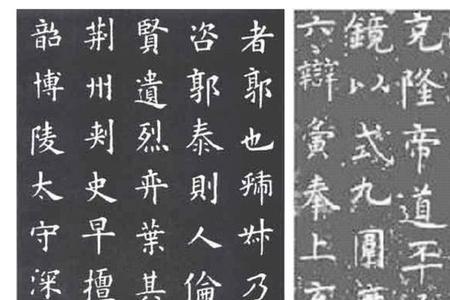 者郭也乃
咨郭泰則人倫
賢遺烈弈葉其
荊州刺史早擅
韶博陵太守深
克隆帝道丕
鏡以式九圍
六辯寅奉上玄